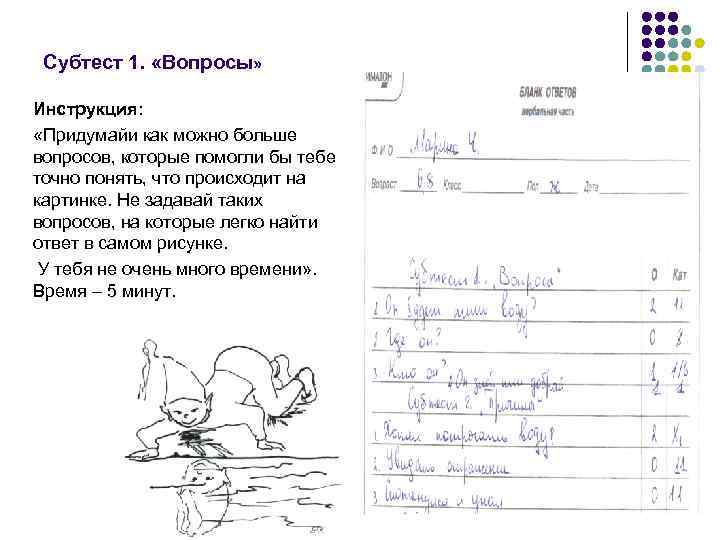 Субтест 1. «Вопросы»
Инструкция:
«Придумайи как можно больше
вопросов, которые помогли бы тебе
точно понять, что происходит на
картинке. Не задавай таких
вопросов, на которые легко найти
ответ в самом рисунке.
У тебя не очень много времени» .
Время – 5 минут.
ИМАТОН
БЛАНК ОТВЕТОВ
вербальная часть
Ф И О Марина Ч.
Возраст 6,8 Класс Пол Ж Дата
Субтест 1. „Вопросы" О Кат
Он будет пить воду? 2 11
2. Где он? 0 8
3. Кто он? 4. Он злой или добрый 1 1/8
1 1
Субтест 2. „Причины"
1. Хотел потрогать воду? 2 X1
2. Увидало отражение 0 11
3. и упал 0 11